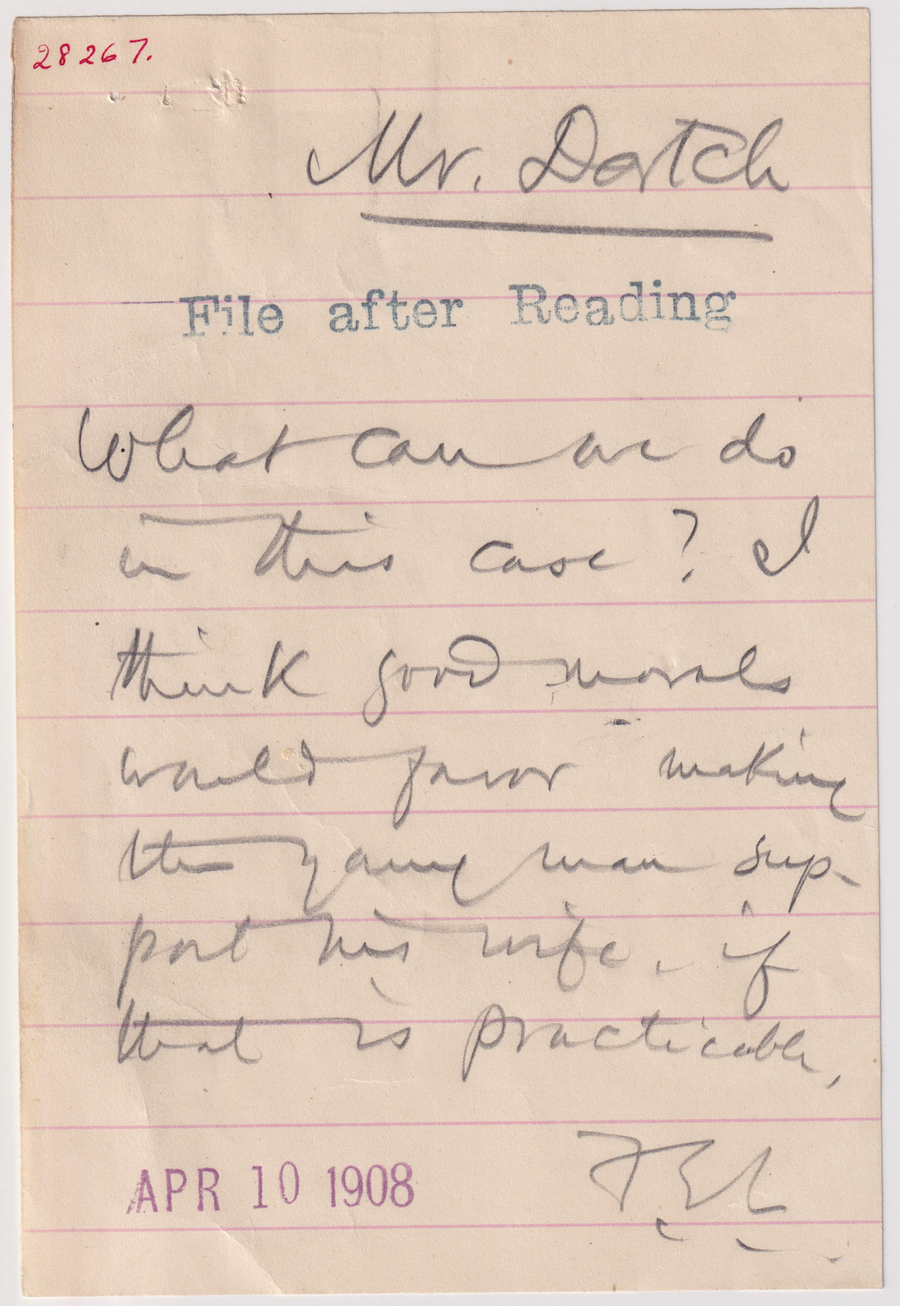 28267.
Mr. Dortch
File after Reading
What can we do
in this case? I
think good morals
would favor making
the young man sup-
port his wife, if
that is practicable,
APR 10 1908
F.E.L.